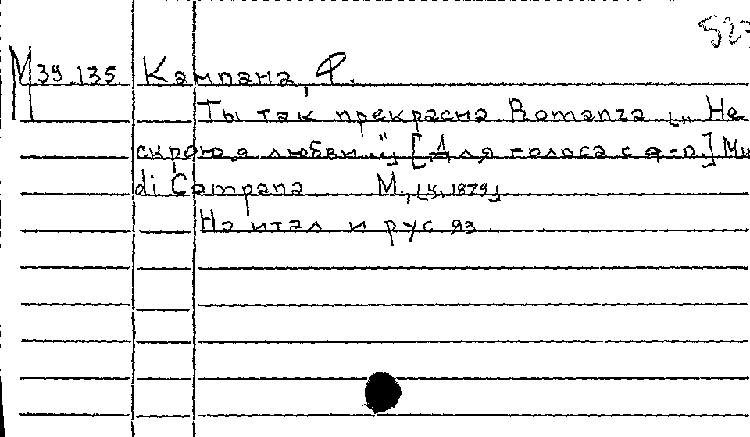 523
М 39.135 Кампана, Ф.
Ты так прекрасна Romanza [„Не
скрою я любви..."] [Для голоса с ф-п.] Mu
di Campana М., [ц. 1879]
На итал и рус яз